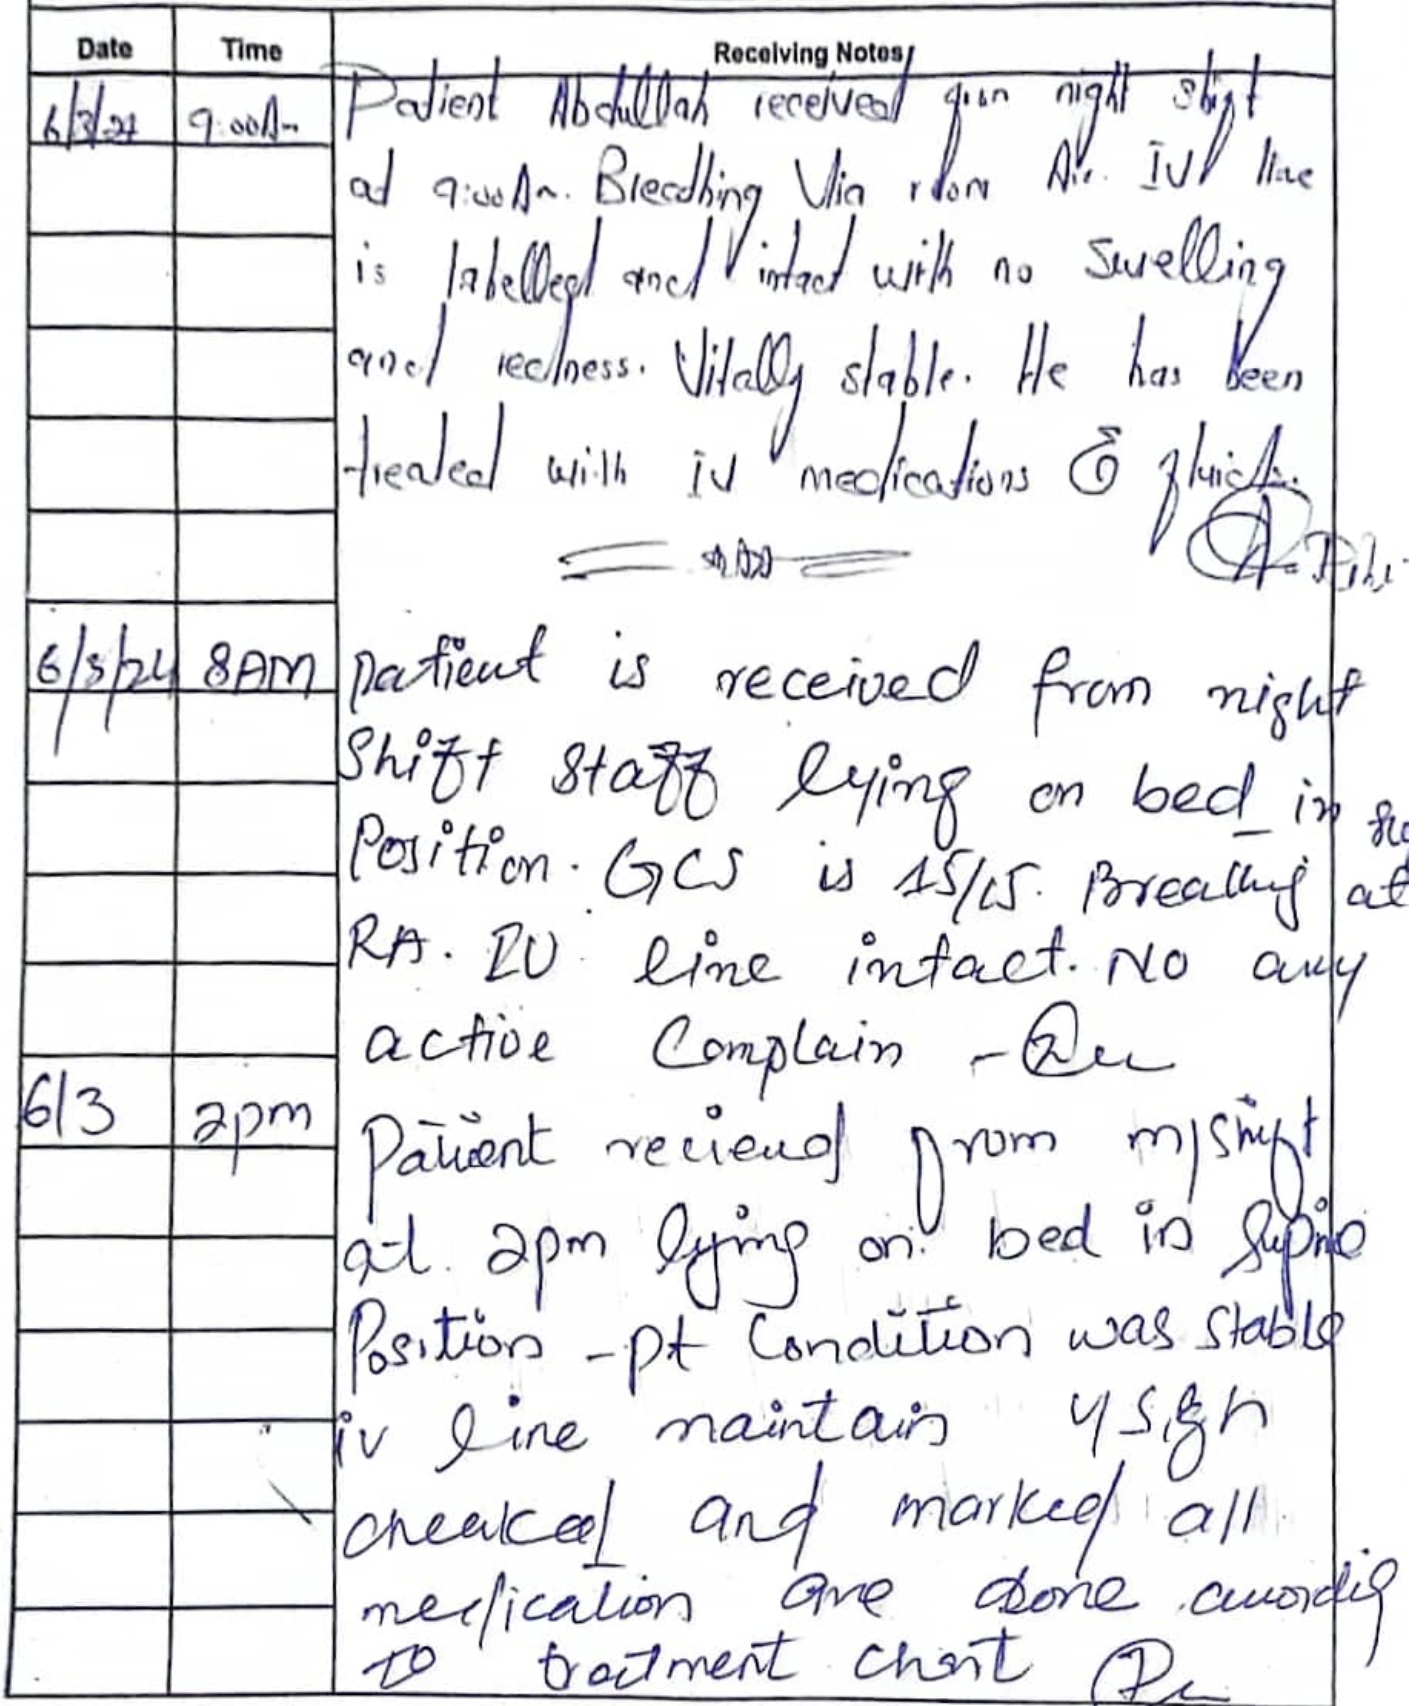 Date Time Receiving Notes
6/3/24 9:00Am Patient Abdullah received from night shift
at 9:00Am. Breathing Via room Air. IV line
is labelled and intact with no Swelling
and redness. Vitally stable. He has been
treated with IV medications & fluids.
6/3/24 8AM patient is received from night
Shift Staff lying on bed in
Position. GCS is 15/15. Breathing at
RA. IV line intact. No any
active Complain
6/3 2pm Patient recieved from m/shift
at 2pm lying on bed in Supine
Position - pt Condition was stable
iv line maintain v/sign
cheaked and marked all
medication are done according
to treatment chart